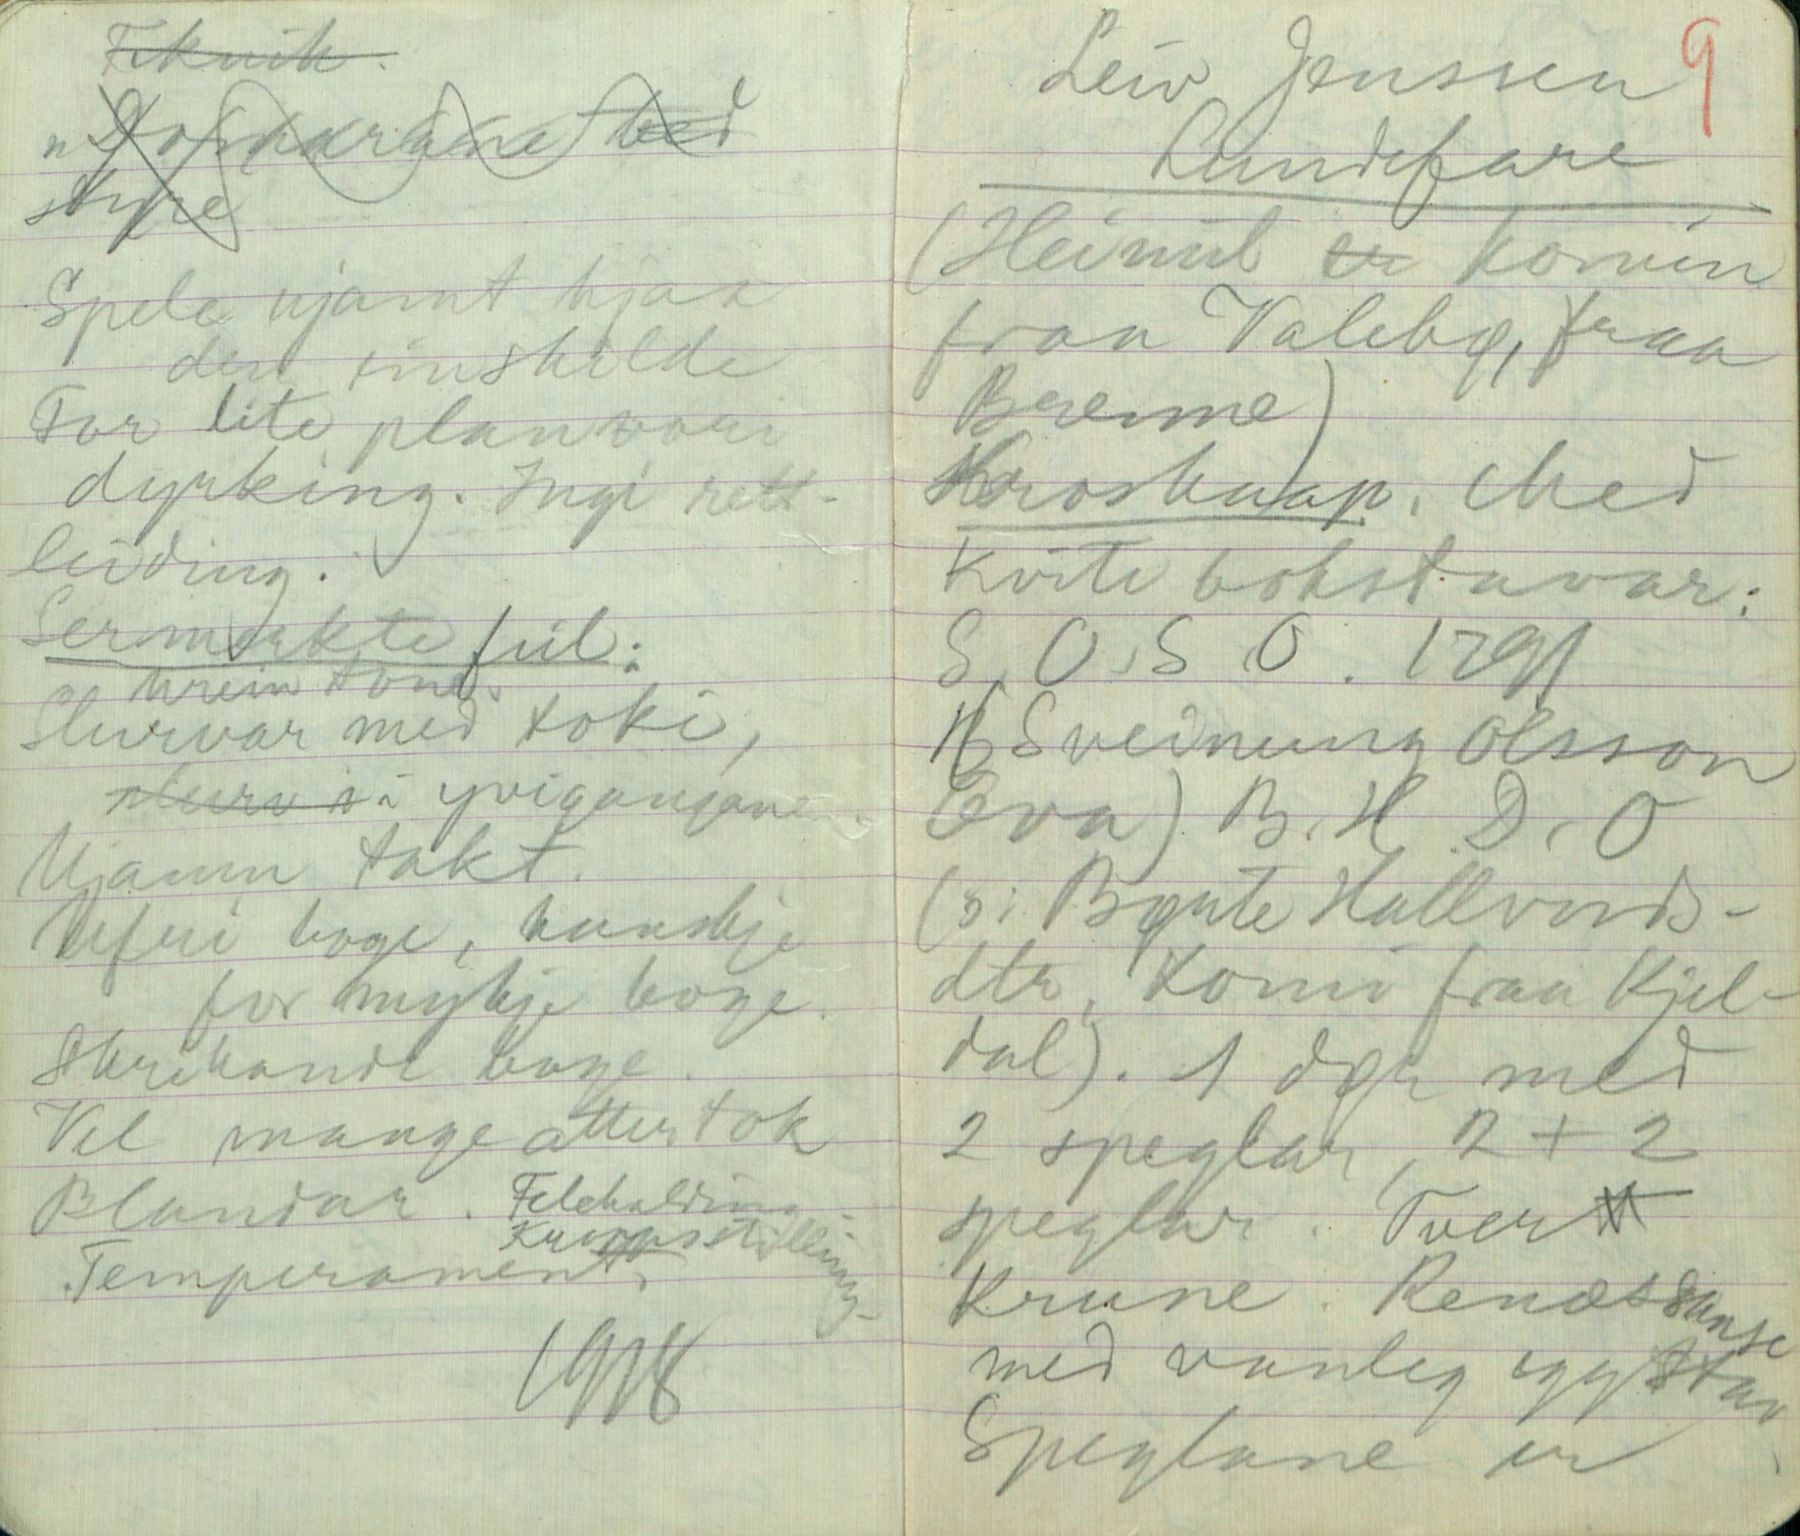 Teknik.
med
styre
Spele ujamt hjaa
den einskilde
For lite planvori
dyrking. Ingi rett-
leiding.
Sermerkte feil:
urein tone.
Slurvar med toki,
slurv i yvigangane.
Ujamn takt.
Ufri boge, kanskje
for mykje boge.
Skrikande boge.
Vel mange attertok
Blandar. Felehalding.
Kroppsstilling
Temperament.
1918
9
Leiv Jenssen
Lundefare
(Heimil er komin
fraa Valebø, fraa
Bereime)
Kroskaap. Med
kvite bokstavar:
S. O. S. O. 1791
Sveinung Olsson
Eva) B. H. D. O
(o: Bøyte Hallvords-
dtr, komi fraa Kjel-
dal). 1 dør med
2 speglar, 2 + 2
speglar. Tver
Krune. Renæssanse
med vanleg eggstav
Speglane er